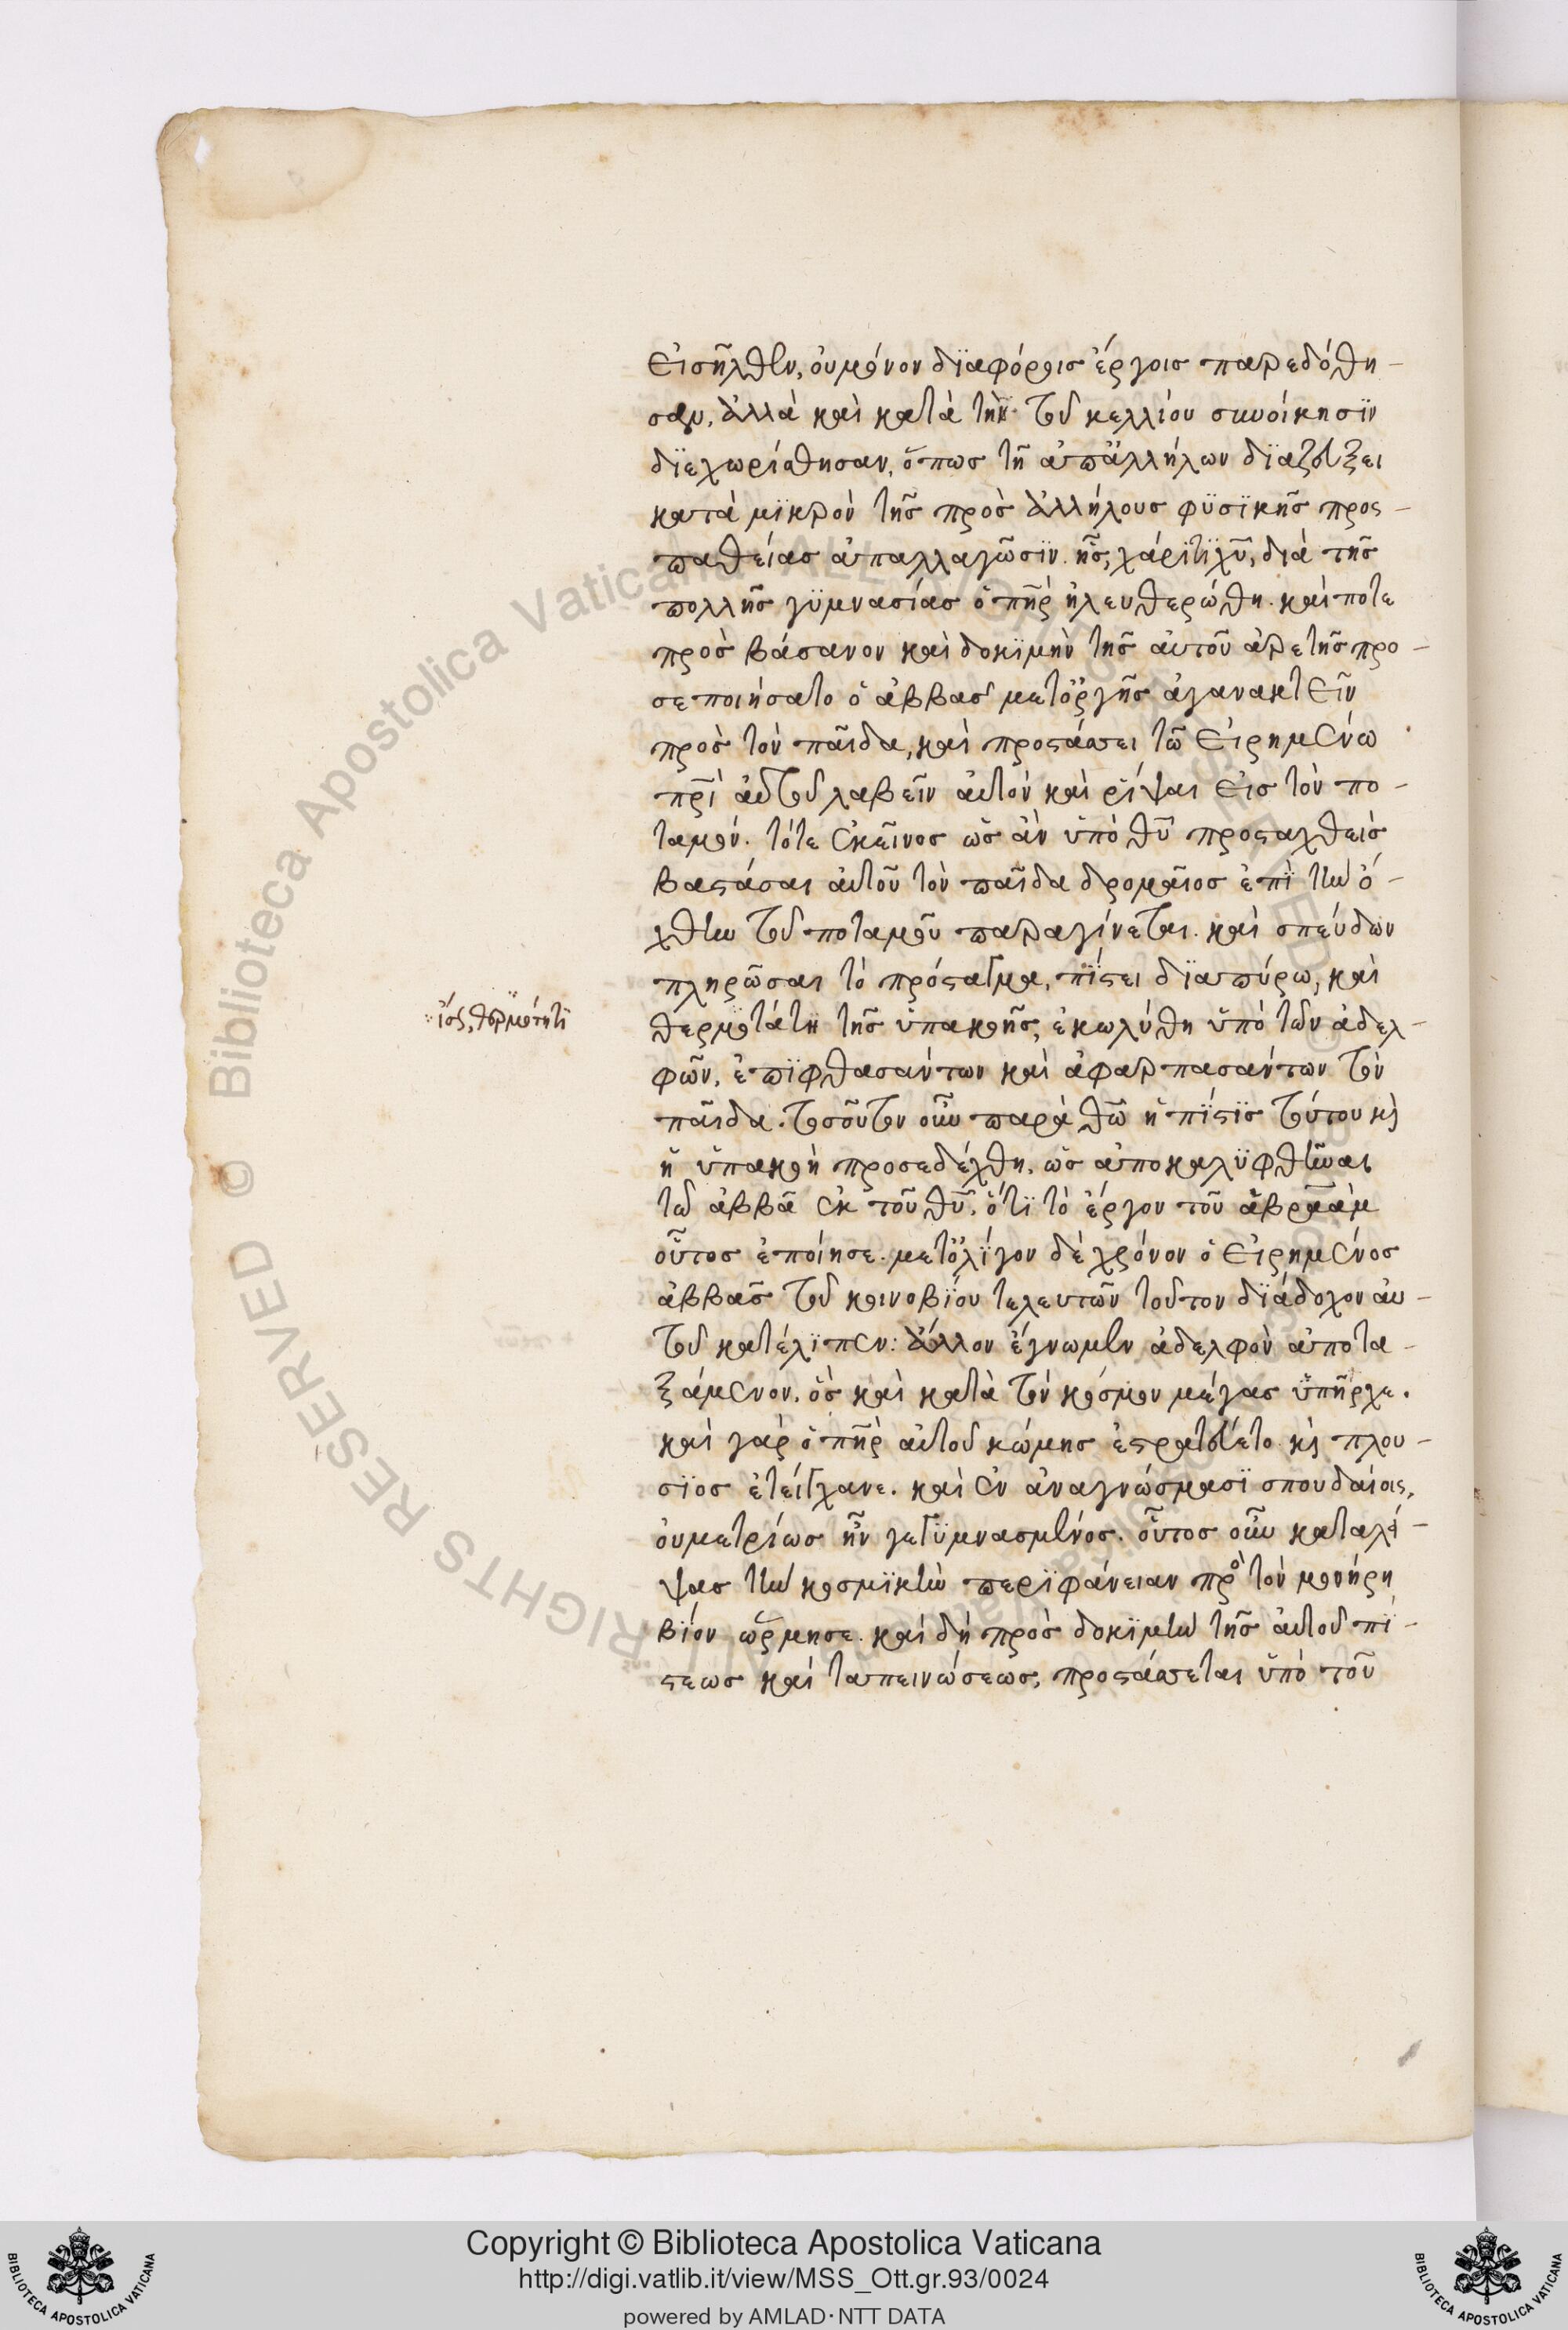 εἰσῆλθεν, οὐ μόνον διαφόροις ἔργοις παρεδόθη-
σαν, ἀλλὰ καὶ κατὰ τὴν τοῦ κελλίου συνοίκησϊν
δϊεχωρίσθησαν, ὅπως τῇ ἀπ' ἀλλήλων δϊαζεύξει
κατὰ μϊκρὸν τῆς πρὸς ἀλλήλους φϋσϊκῆς προς-
παθείας ἀπαλλαγῶσϊν. ἧς, χάρϊτϊ χυ, διὰ τῆς
πολλῆς γϋμνασίας ὁ πηρ ἠλευθερώθη. καί ποτε
πρὸς βάσανον καὶ δοκϊμὴν τῆς αὐτοῦ ἀρετῆς προ-
σεποιήσατο ὁ ἀββᾶς μετ' ὀργῆς ἀγανακτεῖν
πρὸς τὸν παῖδα, καὶ προστάσσει τῶ εἰρημένω
πρι αὐτοῦ λαβεῖν αὐτὸν καὶ ῥίψαι εἰς τὸν πο-
ταμόν. τότε ἐκεῖνος ὡς ἂν ὑπὸ θυ προσταχθεὶς
βαστάσαι αὐτοῦ τὸν παῖδα δρομαῖος ἐπὶ τὴν ὄ-
χθην τοῦ ποταμοῦ παραγίνεται. καὶ σπεύδων
πληρῶσαι τὸ πρόσταγμα, πίστει δϊαπύρω, καὶ
θερμοτάτη τῆς ὑπακοῆς, ἐκωλύθη ὑπὸ τῶν ἀδελ-
φῶν, ἐπϊφθασάντων καὶ ἀφαρπασάντων τὸν
παῖδα. τοσοῦτον οὖν παρὰ θω ἡ πίστϊς τούτου κὶ
ἡ ὑπακοὴ προσεδέχθη, ὡς ἀποκαλϋφθῆναι
τῶ ἀββᾶ ἐκ τοῦ θυ, ὅτϊ τὸ ἔργον τοῦ ἀβραὰμ
οὗτος ἐποίησε. μετ' ὀλίγον δὲ χρόνον ὁ εἰρημένος
ἀββᾶς τοῦ κοινοβίου τελευτῶν τοῦτον δϊάδοχον αὐ-
τοῦ κατέλϊπεν: ἄλλον ἔγνωμεν ἀδελφὸν ἀποτα-
ξάμενον, ὃς καὶ κατὰ τὸν κόσμον μέγας ὑπῆρχε.
καὶ γὰρ ὁ πηρ αὐτοῦ κώμης ἐστρατεύετο κὶ πλου-
σϊος ἐτείγχανε. καὶ ἐν ἀναγνώσμασϊ σπουδαίοις,
οὐ μετρίως ἦν γεγϋμνασμένος. οὗτος οὖν καταλεί-
ψας τὴν κοσμϊκὴν περϊφάνειαν πρὸ τὸν μονήρη
βίον ὥρμησε. καὶ δὴ πρὸς δοκϊμὴν τῆς αὐτοῦ πί-
στεως καὶ ταπεινώσεως, προστάσσεται ὑπὸ τοῦ
ἴσως, θερμότητϊ
Copyright © Biblioteca Apostolica Vaticana
http://digi.vatlib.it/view/MSS_Ott.gr.93/0024
powered by AMLAD·NTT DATA
BIBLIOTECA APOSTOLICA VATICANA
BIBLIOTECA APOSTOLICA VATICANA